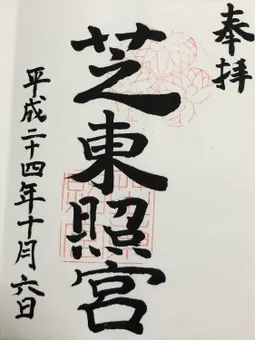 奉拝
芝東照宮
平成二十四年十月六日